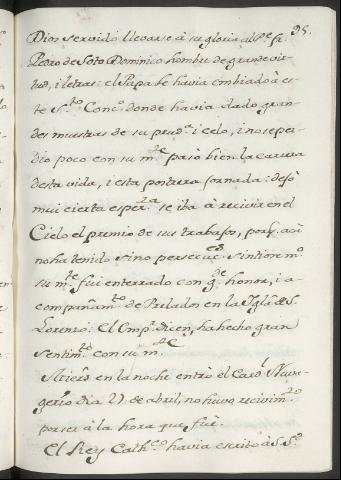 95.
Dios servido llevarse à su gloria al P.e fr.
Pedro de Soto Dominico hombre de grande vir-
tud, i letras: el Papa le havia embiado à es-
te S.to Conc.o donde havia dado gran-
des muestras de su prud.a i celo, i no se per-
dio poco con su m.te pasò bien la carrera
desta vida, i esta postrera jornada: dejò
mui cierta esper.za se iba à recivir en el
Cielo el premio de sus trabajos, porq. acà
no ha tenido sino persecuc.es Sintiòn m.o
su m.te fuè enterrado con g.de honor, i a-
compañam.to de Prelados en la Igl.a de S.
Lorenzo. El Emp.r dicen, ha hecho gran
sentim.to con su m.te
Miercs en la noche entrò el Car.l Nava-
gerio dia 27 de abril, no huvo recivim.to
por ser à la hora que fuè.
El Rey Cath.co havia escrito à S. S.d